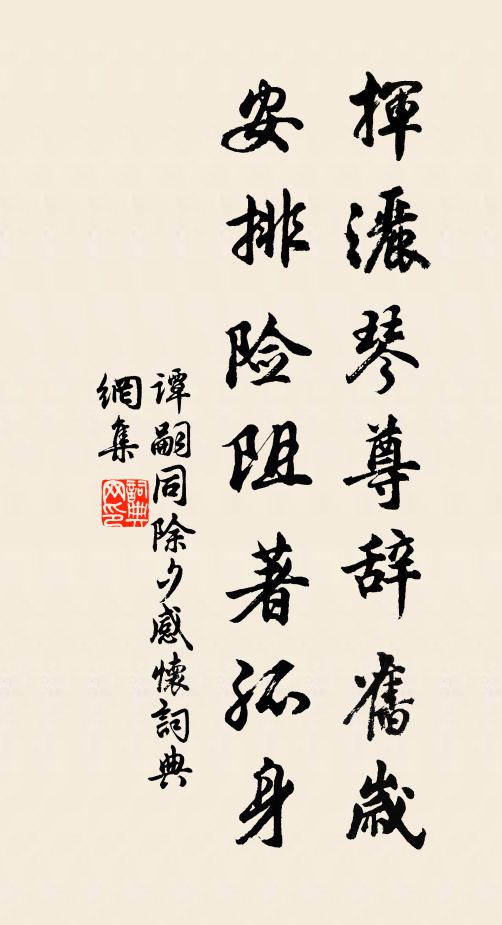 揮灑琴尊辞舊歲
安排险阻著孤身
谭嗣同除夕感懷詞典
網集
詞典
网印